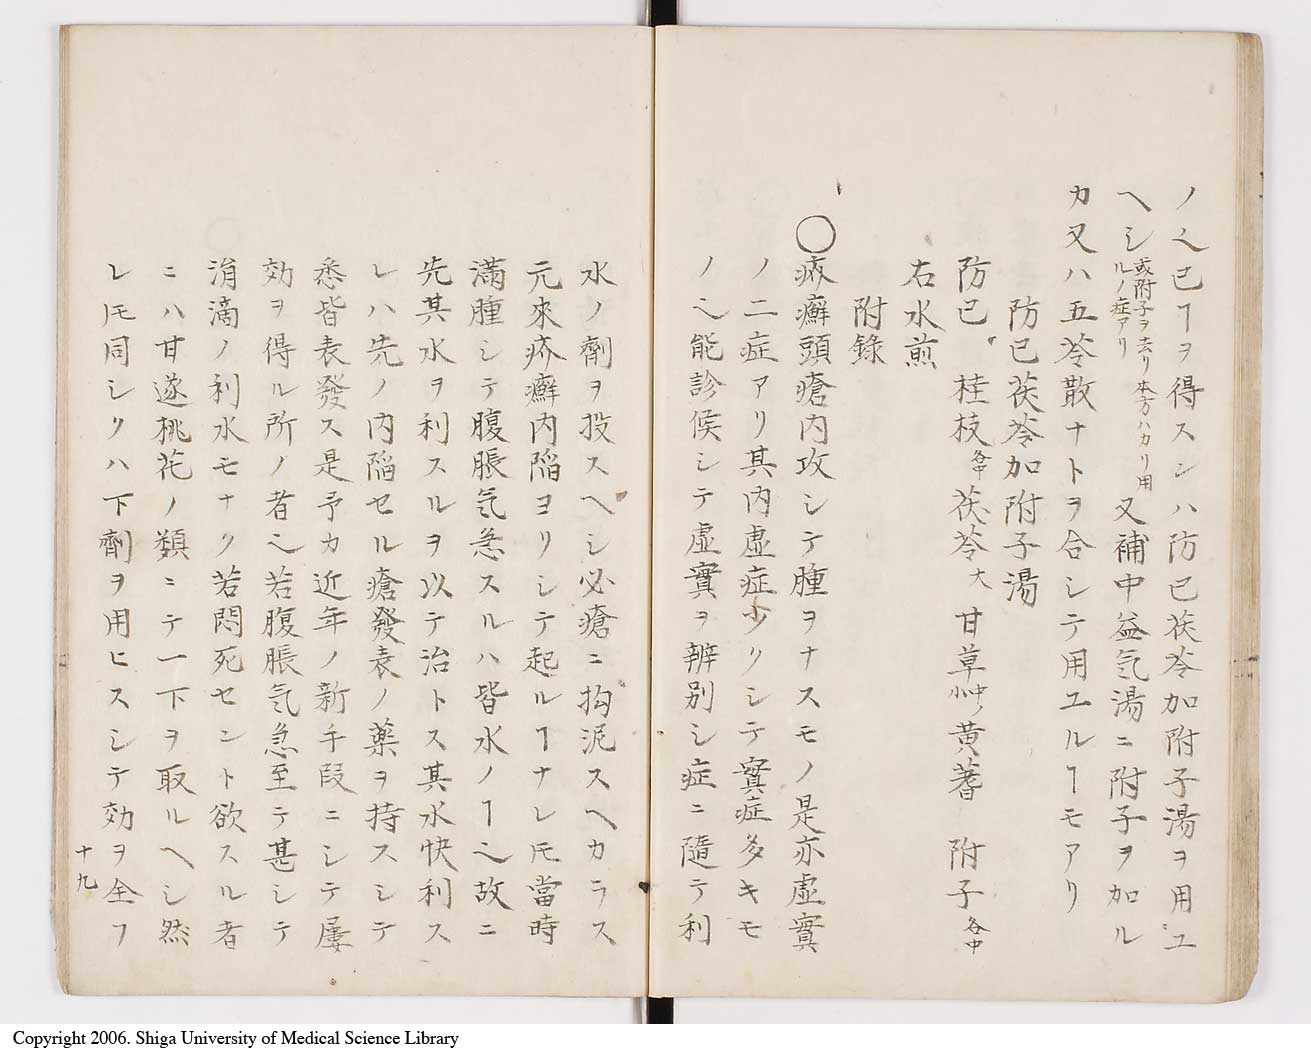 ノ乀已ヿヲ得スンハ防已茯苓加附子湯ヲ用ユ
ヘシ或附子ヲ去リ本方ハカリ用ルノ症アリ又補中益気湯ニ附子ヲ加ル
カ又ハ五苓散ナトヲ合シテ用ユルヿモアリ
防已茯苓加附子湯
防已 桂枝各中茯苓大甘草中黄蓍 附子各中
右水煎
附錄
〇疥癬頭瘡内攻シテ腫ヲナスモノ是亦虚實
ノ二症アリ其内虚症少クシテ實症多キモ
ノ乀能診候シテ虚實ヲ辨別シ症ニ隨テ利
水ノ劑ヲ投スヘシ必瘡ニ拘泥スヘカラス
元來疥癬内陥ヨリシテ起ルヿナレ𪜈當時
滿腫シテ腹脹気急スルハ皆水ノヿ乀故ニ
先其水ヲ利スルヲ以テ治トス其水快利ス
レハ先ノ内陥セル瘡發表ノ藥ヲ持スシテ
悉皆表發ス是予カ近年ノ新手段ニシテ屡
効ヲ得ル所ノ者乀若腹脹気急至テ甚シテ
涓滴ノ利水モナク若悶死セント欲スル者
ニハ甘遂桃花ノ類ニテ一下ヲ取ルヘシ然
レ𪜈同シクハ下劑ヲ用ヒスシテ効ヲ全フ
十九
Copyright 2006. Shiga University of Medical Science Library